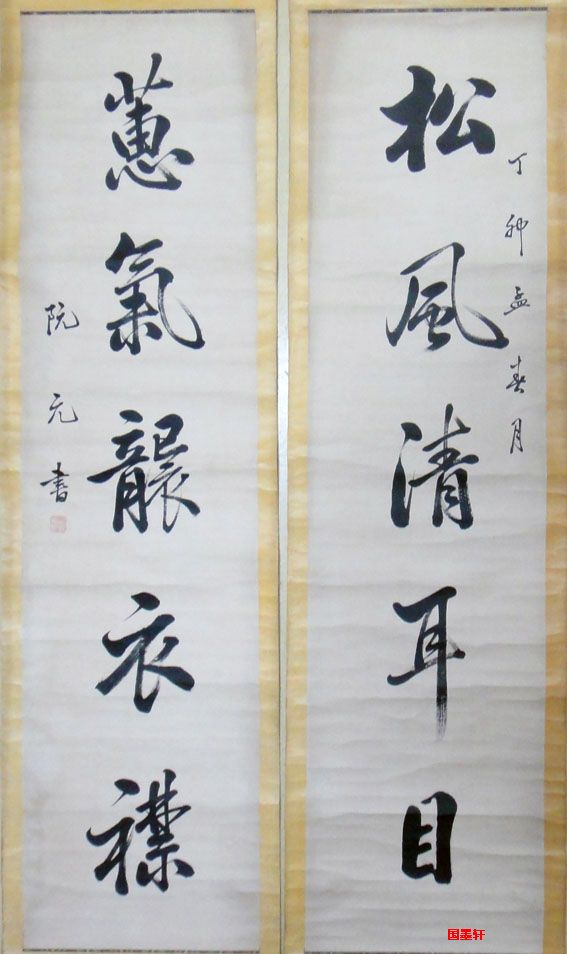 丁卯孟春月
松風清耳目
蕙氣襲衣襟
阮元書
国墨轩